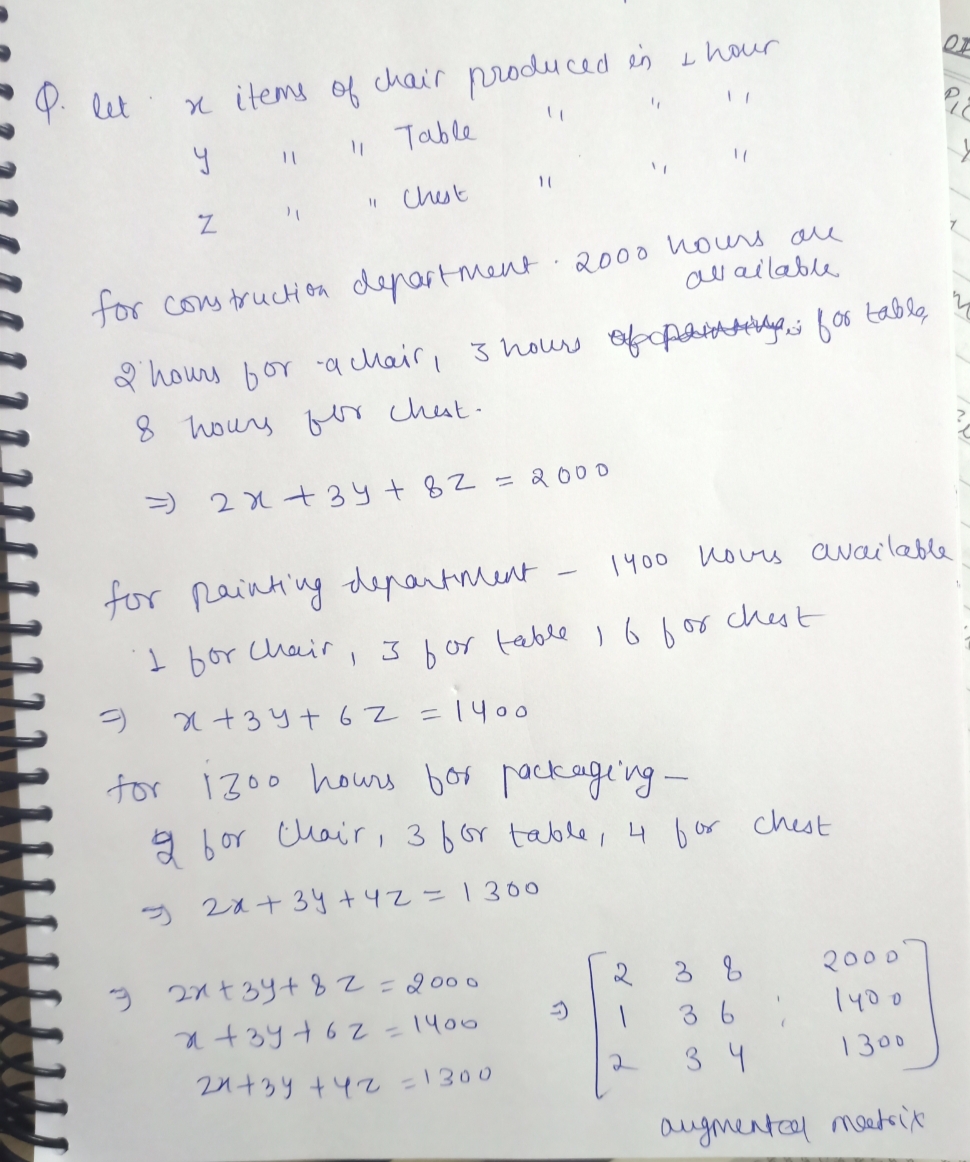 Q. let x items of chair produced in 1 hour
y " " Table " " "
z " " Chest " " "
for construction department. 2000 hours are
available
2 hours for a chair, 3 hours for table,
8 hours for chest.
⇒ 2x + 3y + 8z = 2000
for painting department – 1400 hours available
1 for chair, 3 for table, 6 for chest
⇒ x + 3y + 6z = 1400
for 1300 hours for packaging –
2 for chair, 3 for table, 4 for chest
⇒ 2x + 3y + 4z = 1300
⇒ 2x + 3y + 8z = 2000
x + 3y + 6z = 1400
2x + 3y + 4z = 1300
⇒ [ 2 3 8 2000
1 3 6 ; 1400
2 3 4 1300 ]
augmented matrix